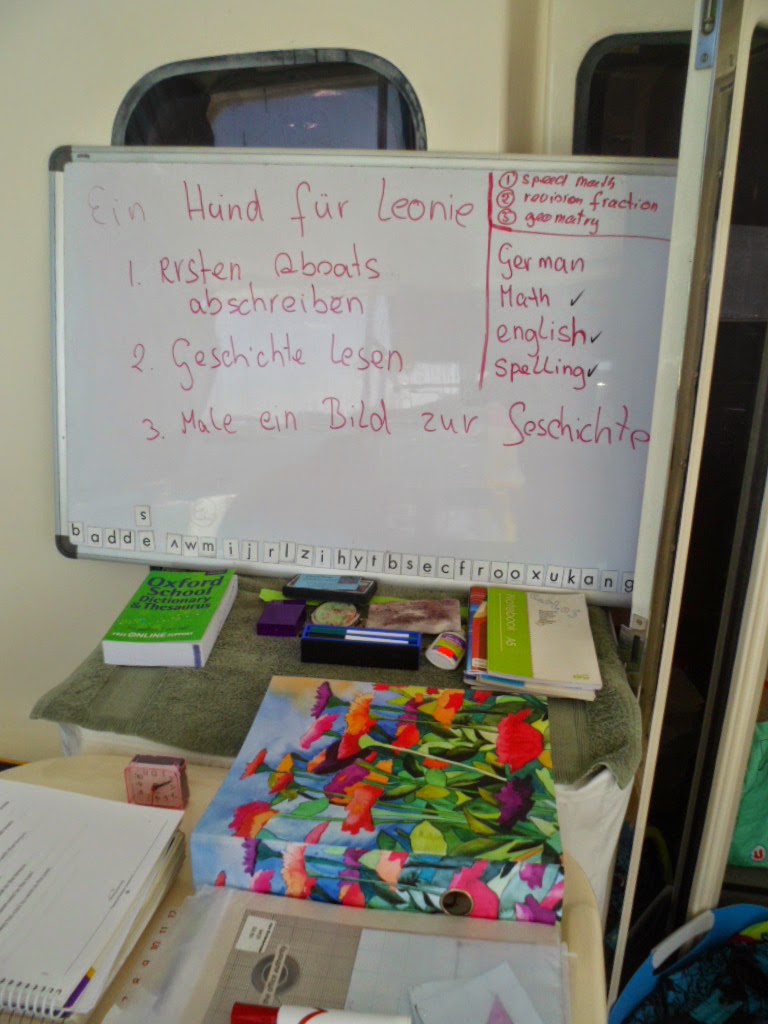 Ein Hund für Leonie
1. ersten Absats
abschreiben
2. Geschichte Lesen
3. Male ein Bild zur Geschichte
① speed math
② revision fraction
③ geomatry
German
Math ✓
english ✓
spelling ✓
s
b a d d e ʌ w m i j r l z i h y t b s e c f r o o x u k a n g
Oxford
School
Dictionary
& Thesaurus
NOTEBOOK A5